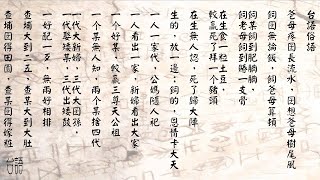 台語俗語
爸母疼囝長流水，囝想爸母樹尾風
飼囝無論飯，飼爸母算頓
飼某飼到肥腯腯
飼老母飼到賰一支骨
在生食一粒土豆
較贏死了拜一個豬頭
在生無人認，死了歸大陣
生的，放一邊；飼的，恩情卡大天
一人一家代，公媽隨人祀
一人看出一家，新婦看出大家
一个好某，較贏三尊天公祖
一个某無人知，兩个某捨四代
一代大新婦，三代大囝孫
一代娶矮某，三代出矮鼓
一好配一歹，無兩好相排
查埔大到二五，查某大到大肚
查埔囝得田園，查某囝得嫁粧
台語